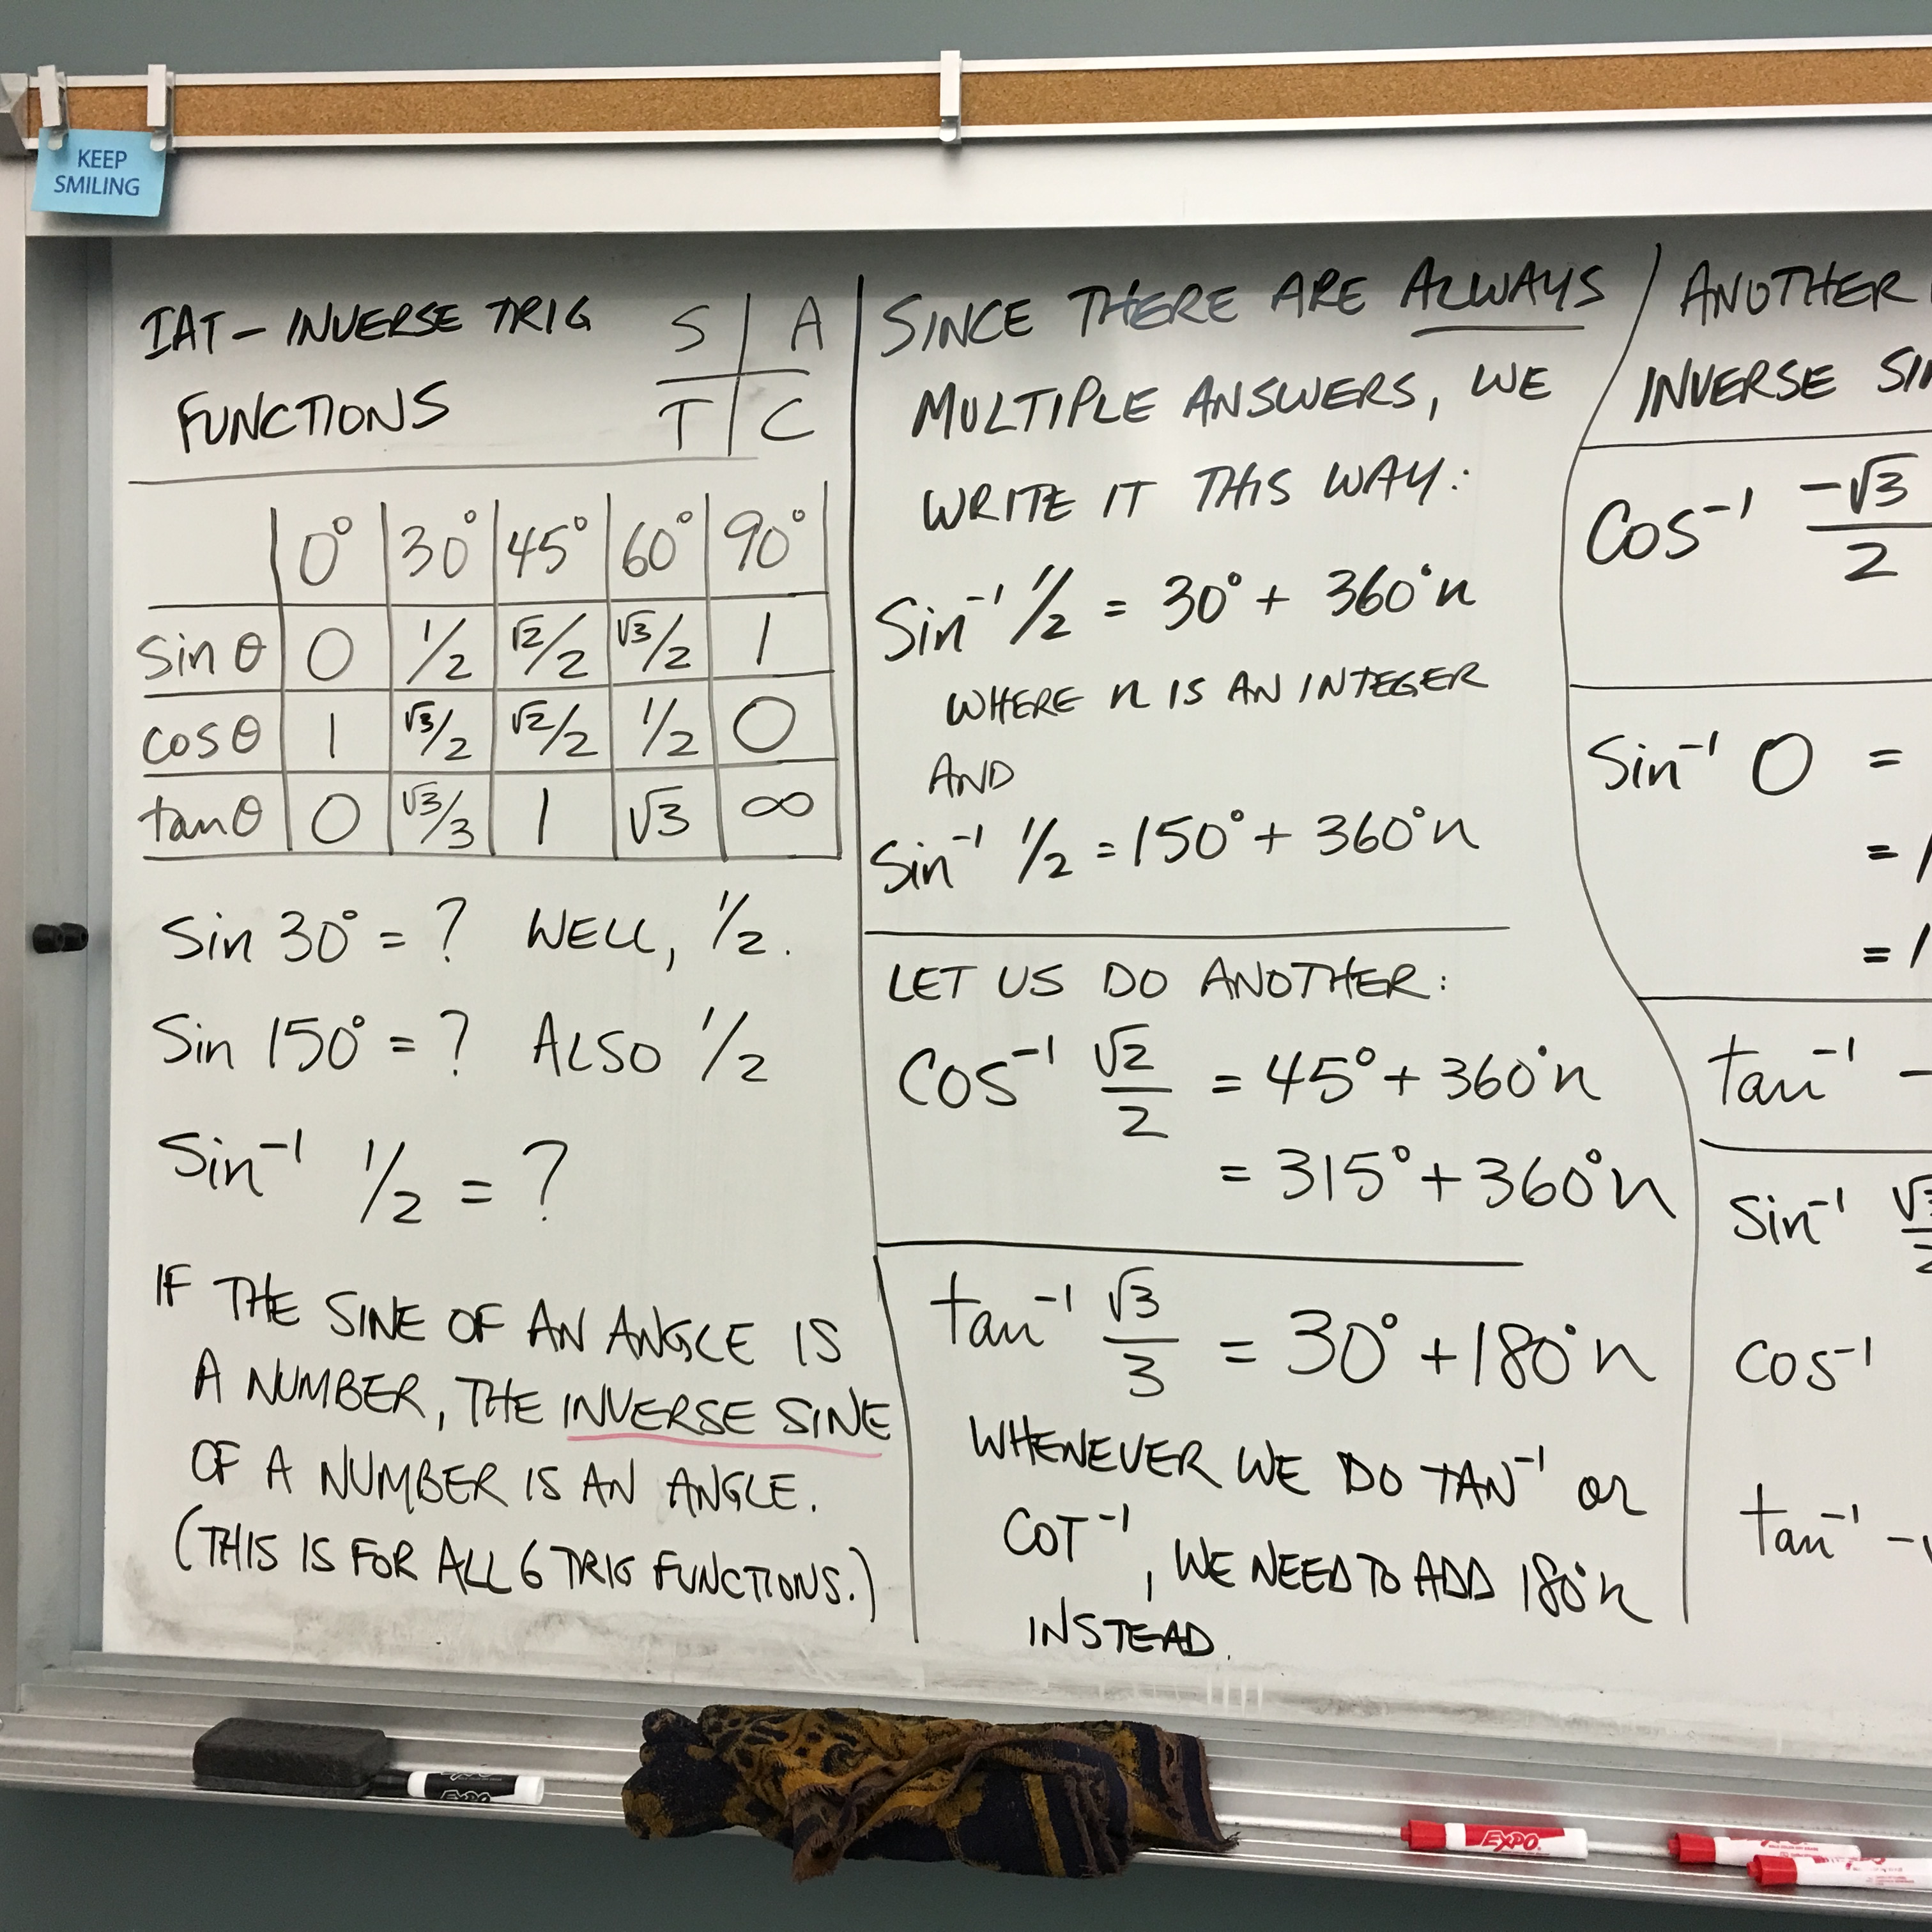 KEEP
SMILING
IAT – INVERSE TRIG
FUNCTIONS
S A
T C
0° 30° 45° 60° 90°
sin θ 0 1/2 √2/2 √3/2 1
cos θ 1 √3/2 √2/2 1/2 0
tan θ 0 √3/3 1 √3 ∞
Sin 30° = ? WELL, 1/2.
Sin 150° = ? ALSO 1/2
Sin⁻¹ 1/2 = ?
IF THE SINE OF AN ANGLE IS
A NUMBER, THE INVERSE SINE
OF A NUMBER IS AN ANGLE.
(THIS IS FOR ALL 6 TRIG FUNCTIONS.)
SINCE THERE ARE ALWAYS
MULTIPLE ANSWERS, WE
WRITE IT THIS WAY:
Sin⁻¹ 1/2 = 30° + 360°n
WHERE n IS AN INTEGER
AND
Sin⁻¹ 1/2 = 150° + 360°n
LET US DO ANOTHER:
COS⁻¹ √2/2 = 45° + 360°n
= 315° + 360°n
tan⁻¹ √3/3 = 30° + 180°n
WHENEVER WE DO TAN⁻¹ or
COT⁻¹, WE NEED TO ADD 180°n
INSTEAD.
ANOTHER
INVERSE
COS⁻¹ -√3/2
Sin⁻¹ 0 =
=
=
tan⁻¹ -
Sin⁻¹
COS⁻¹
tan⁻¹ -
EXPO
EXPO